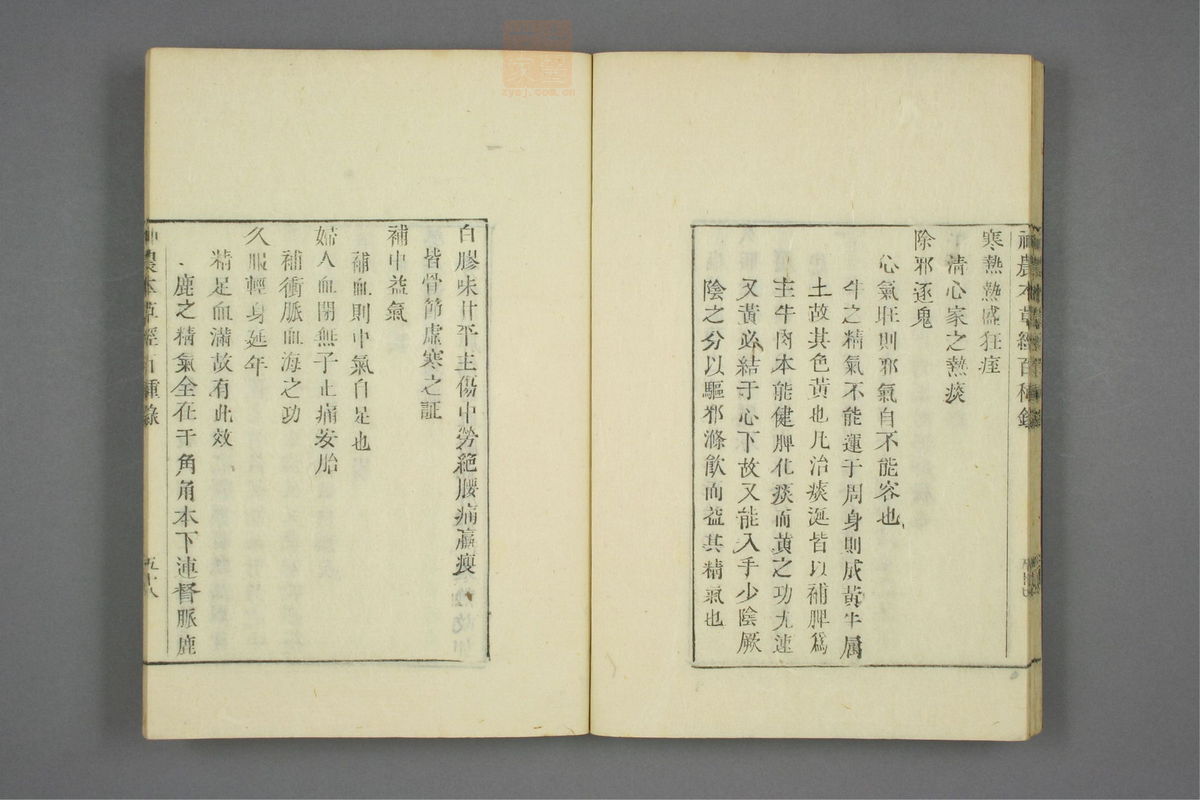 神農本草經百種錄
寒熱熱盛狂痓
清心家之熱痰
除邪逐鬼
心氣旺則邪氣自不能容也
牛之精氣不能運于周身則成黃牛属
土故其色黃也凡治痰涎皆以補脾爲
主牛肉本能健脾化痰而黃之功尤速
又黃必結于心下故又能入手少陰厥
陰之分以驅邪滌飮而益其精氣也
白膠味甘平主傷中勞絶腰痛羸瘦
皆骨節虛寒之証
補中益氣
補血則中氣自足也
婦人血閉無子止痛安胎
補衝脈血海之功
久服輕身延年
精足血滿故有此效
鹿之精氣全在于角角本下連督脈鹿
神農本草經百種錄
五十八
zysj.com.cn